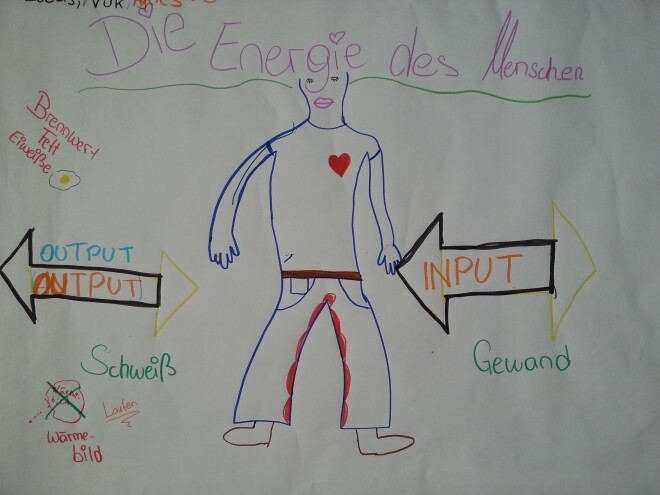 Die Energie des Menschen
Brennwert
Fett
Eiweiße
OUTPUT
OUTPUT
INPUT
Schweiß
Gewand
Laufen
Wärme-
bild